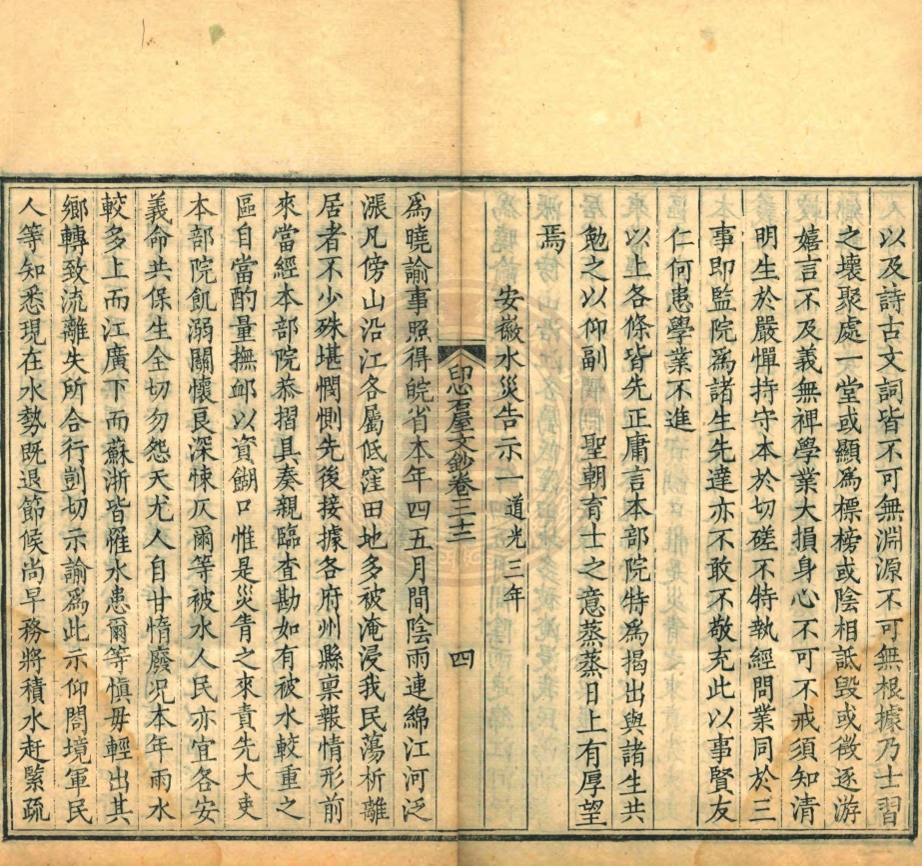 以及詩古文詞皆不可無淵源不可無根據乃士習
之壞聚處一堂或顯爲標榜或陰相詆毀或徵逐游
嬉言不及義無裨學業大損身心不可不戒須知清
明生於嚴憚持守本於切磋不特執經問業同於三
事即監院爲諸生先達亦不敢不敬充此以事賢友
仁何患學業不進
以上各條皆先正庸言本部院特爲揭出與諸生共
勉之以仰副　聖朝育士之意蒸蒸日上有厚望
焉
安徽水災告示一道光三年
印心石屋文鈔卷三十三　四
爲曉諭事照得皖省本年四五月間陰雨連綿江河泛
漲凡傍山沿江各屬低窪田地多被淹浸我民蕩析離
居者不少殊堪憫惻先後接據各府州縣禀報情形前
來當經本部院恭摺具奏親臨查勘如有被水較重之
區自當酌量撫卹以資餬口惟是災眚之來責先大吏
本部院飢溺關懷良深悚仄爾等被水人民亦宜各安
義命共保生全切勿怨天尤人自甘惰廢况本年雨水
較多上而江廣下而蘇浙皆罹水患爾等愼毋輕出其
鄉轉致流離失所合行剴切示諭爲此示仰閤境軍民
人等知悉現在水勢既退節候尚早務將積水赶緊疏